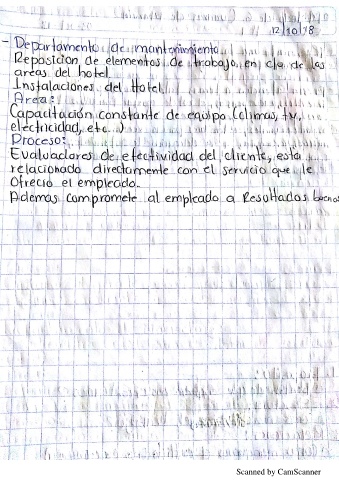 12/10/18
- Departamento de mantenimiento
Reposicion de elementos de trabajo, en c/a de las
areas del hotel.
Instalaciones del Hotel
Area:
Capacitación constante de equipo (climas, tv,
electricidad, etc..)
Proceso:
Evaluadores de efectividad del cliente, esta
relacionado directamente con el servicio que le
ofreció el empleado.
Ademas compromete al empleado a Resultados
Scanned by CamScanner